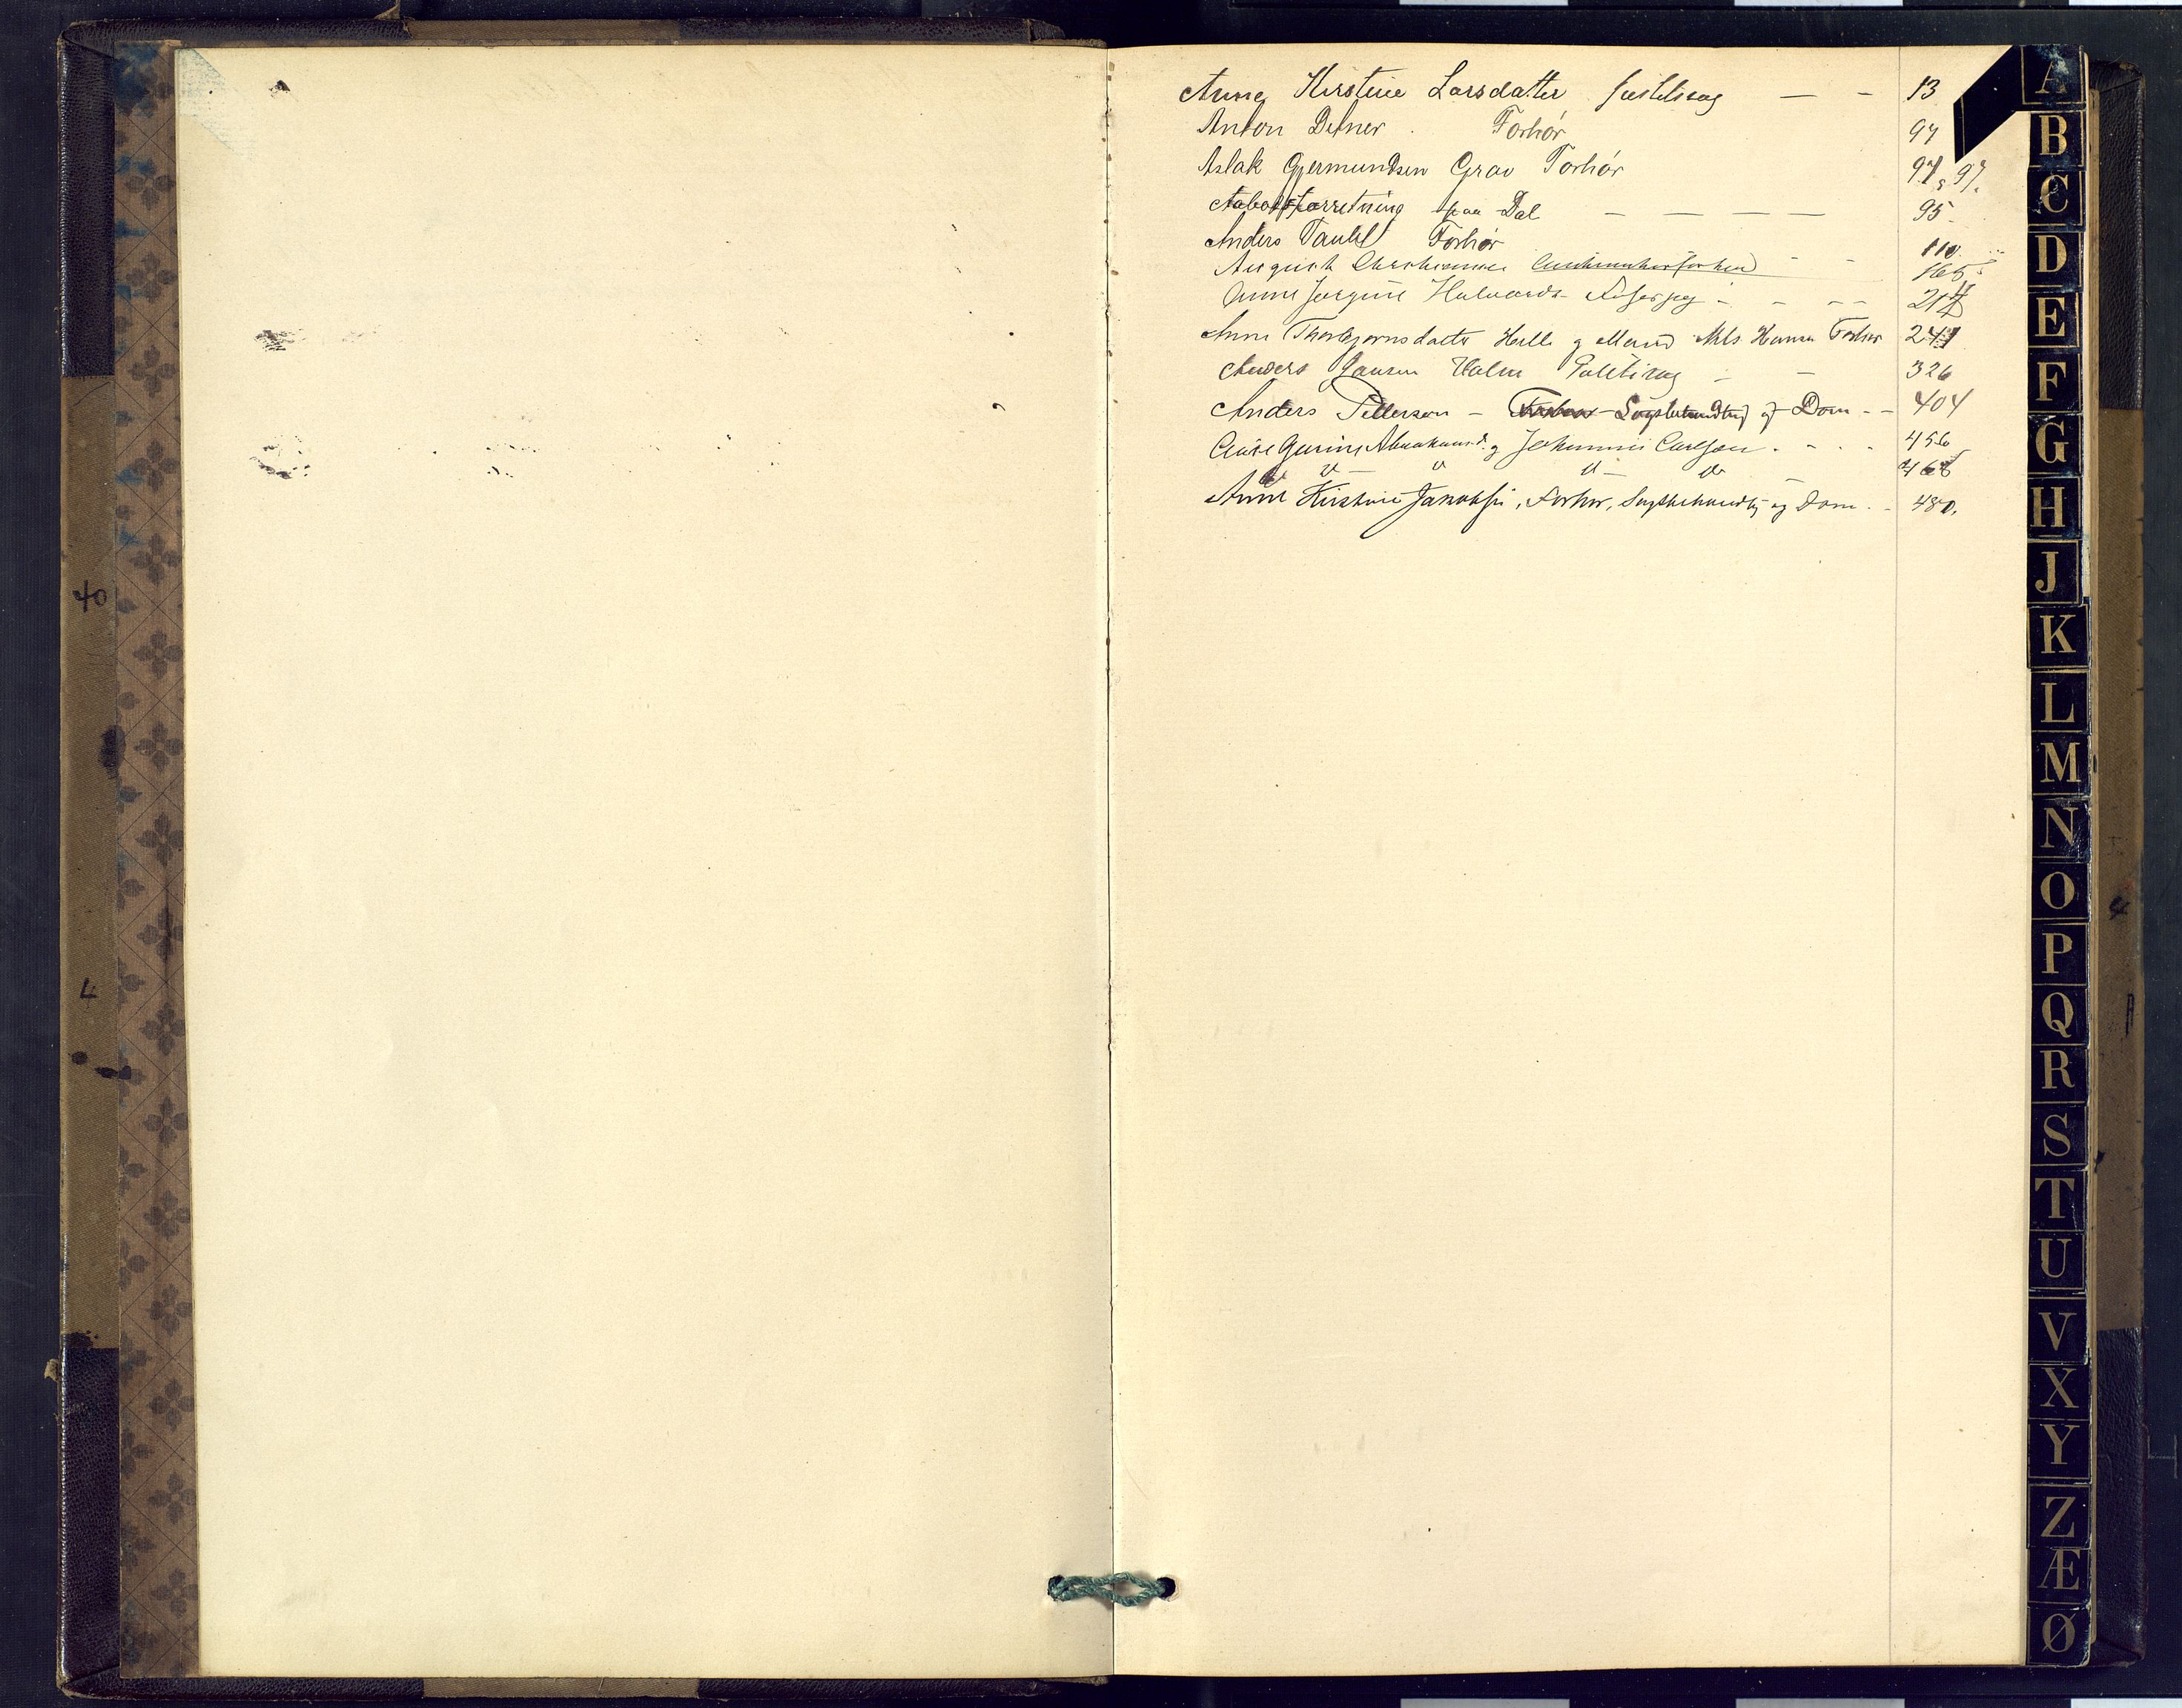 Anne Kirstine Larsdatter Justitssag — - 13
Anton Detner . Forhør 94
Aslak Gjermundsen Grav Forhør 94, 97.
Aabodsforretning paa Dal — — — — 95.
Anders Tauhl Forhør 110.
August Christiansen - - 165
Anne Jørgine Halvards - - - - 214
Anne Thorbjørnsdatter Helle og Mand Nils Hansen Forhør 241
Anders Jansen Holm Politisag - - 326
Anders Pettersen - Forhør - Sagsbehandling og Dom - - 404
Anne Gurine Abrahamsd. og Johannes Carlsen . - . . 456
" - " " - " 468
Anne Kirstine Jakobsen, Forhør, Sagsbehandlg og Dom . - 480.
40
4
A
B
C
D
E
F
G
H
J
K
L
M
N
O
P
Q
R
S
T
U
V
X
Y
Z
Æ
Ø